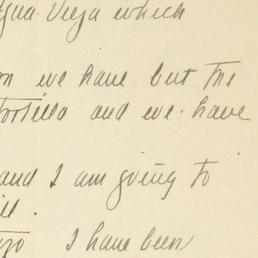 Agua. Vieja which
on we have but the
tortilla and we. have
and I am going to
ill.
I have been